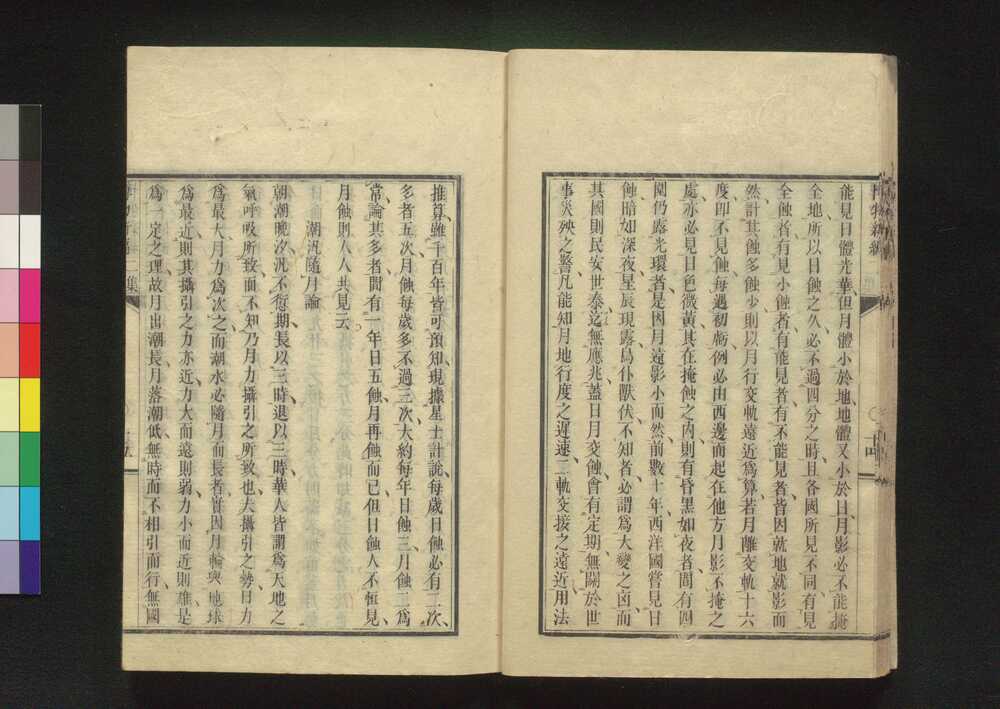 博物新編
能見日體光華但月體小於地地體又小於日月影必不能掩
全地所以日蝕之久必不過四分之時且各國所見不同有見
全蝕者有見小蝕者有能見者有不能見者皆因就地就影而
然計其蝕多蝕少則以月行交軌遠近爲算若月離交軌十六
度卽不見蝕每遇初虧例必由西邊而起在他方月影不掩之
處亦必見日色微黃其在掩蝕之內則有昏黑如夜者間有四
圍仍露光環者是因月遠影小而然前數十年西洋國嘗見日
蝕暗如深夜星辰現露鳥仆獸伏不知者必謂爲大變之凶而
其國則民安世泰迄無應兆蓋日月交蝕會有定期無關於世
事災殃之警凡能知月地行度之遲速二軌交接之遠近用法
推算雖千百年皆可預知現據星士計說每歲日蝕必有二次
多者五次月蝕每歲多不過三次大約每年日蝕三月蝕二爲
常論其多者間有一年日五蝕月再蝕而已但日蝕人不恒見
月蝕則人人共見云
潮汛隨月論
朝潮晚汐汛不愆期長以三時退以三時華人皆謂爲天地之
氣呼吸所致而不知乃月力攝引之所致也夫攝引之勢日力
爲最大月力爲次之而潮水必隨月而長者實因月輪與地球
爲最近則其攝引之力亦近力大而遠則弱力小而近則雄是
爲一定之理故月出潮長月落潮低無時而不相引而行無國